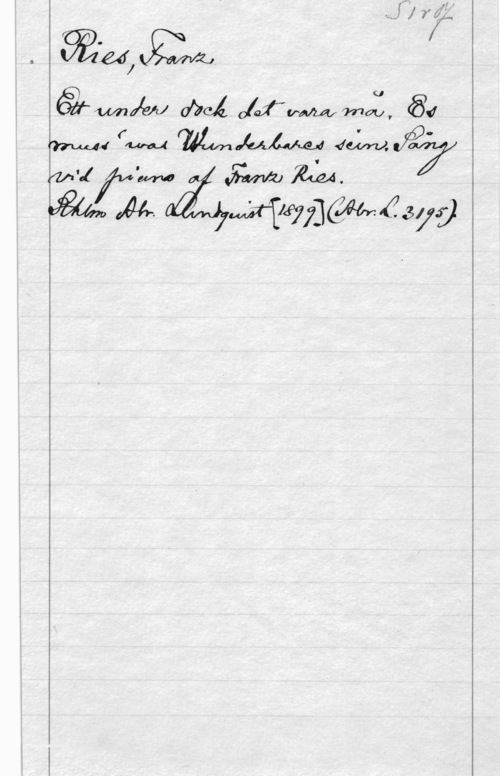 Ries, Franz
Ett under dock det vara må. Es
muss 'was Wunderbares sein. Sång
vid piano af Franz Ries.
Sthlm Abr. Lundquist [1899] (Abr. L. 3195).